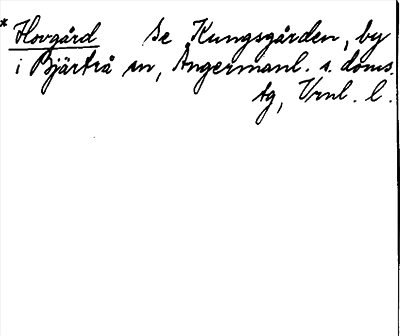 * Hovgård Se Kungsgården, by
i Bjärtrå sn, Ångermanl. s. doms.
tg, Vrnl. l.